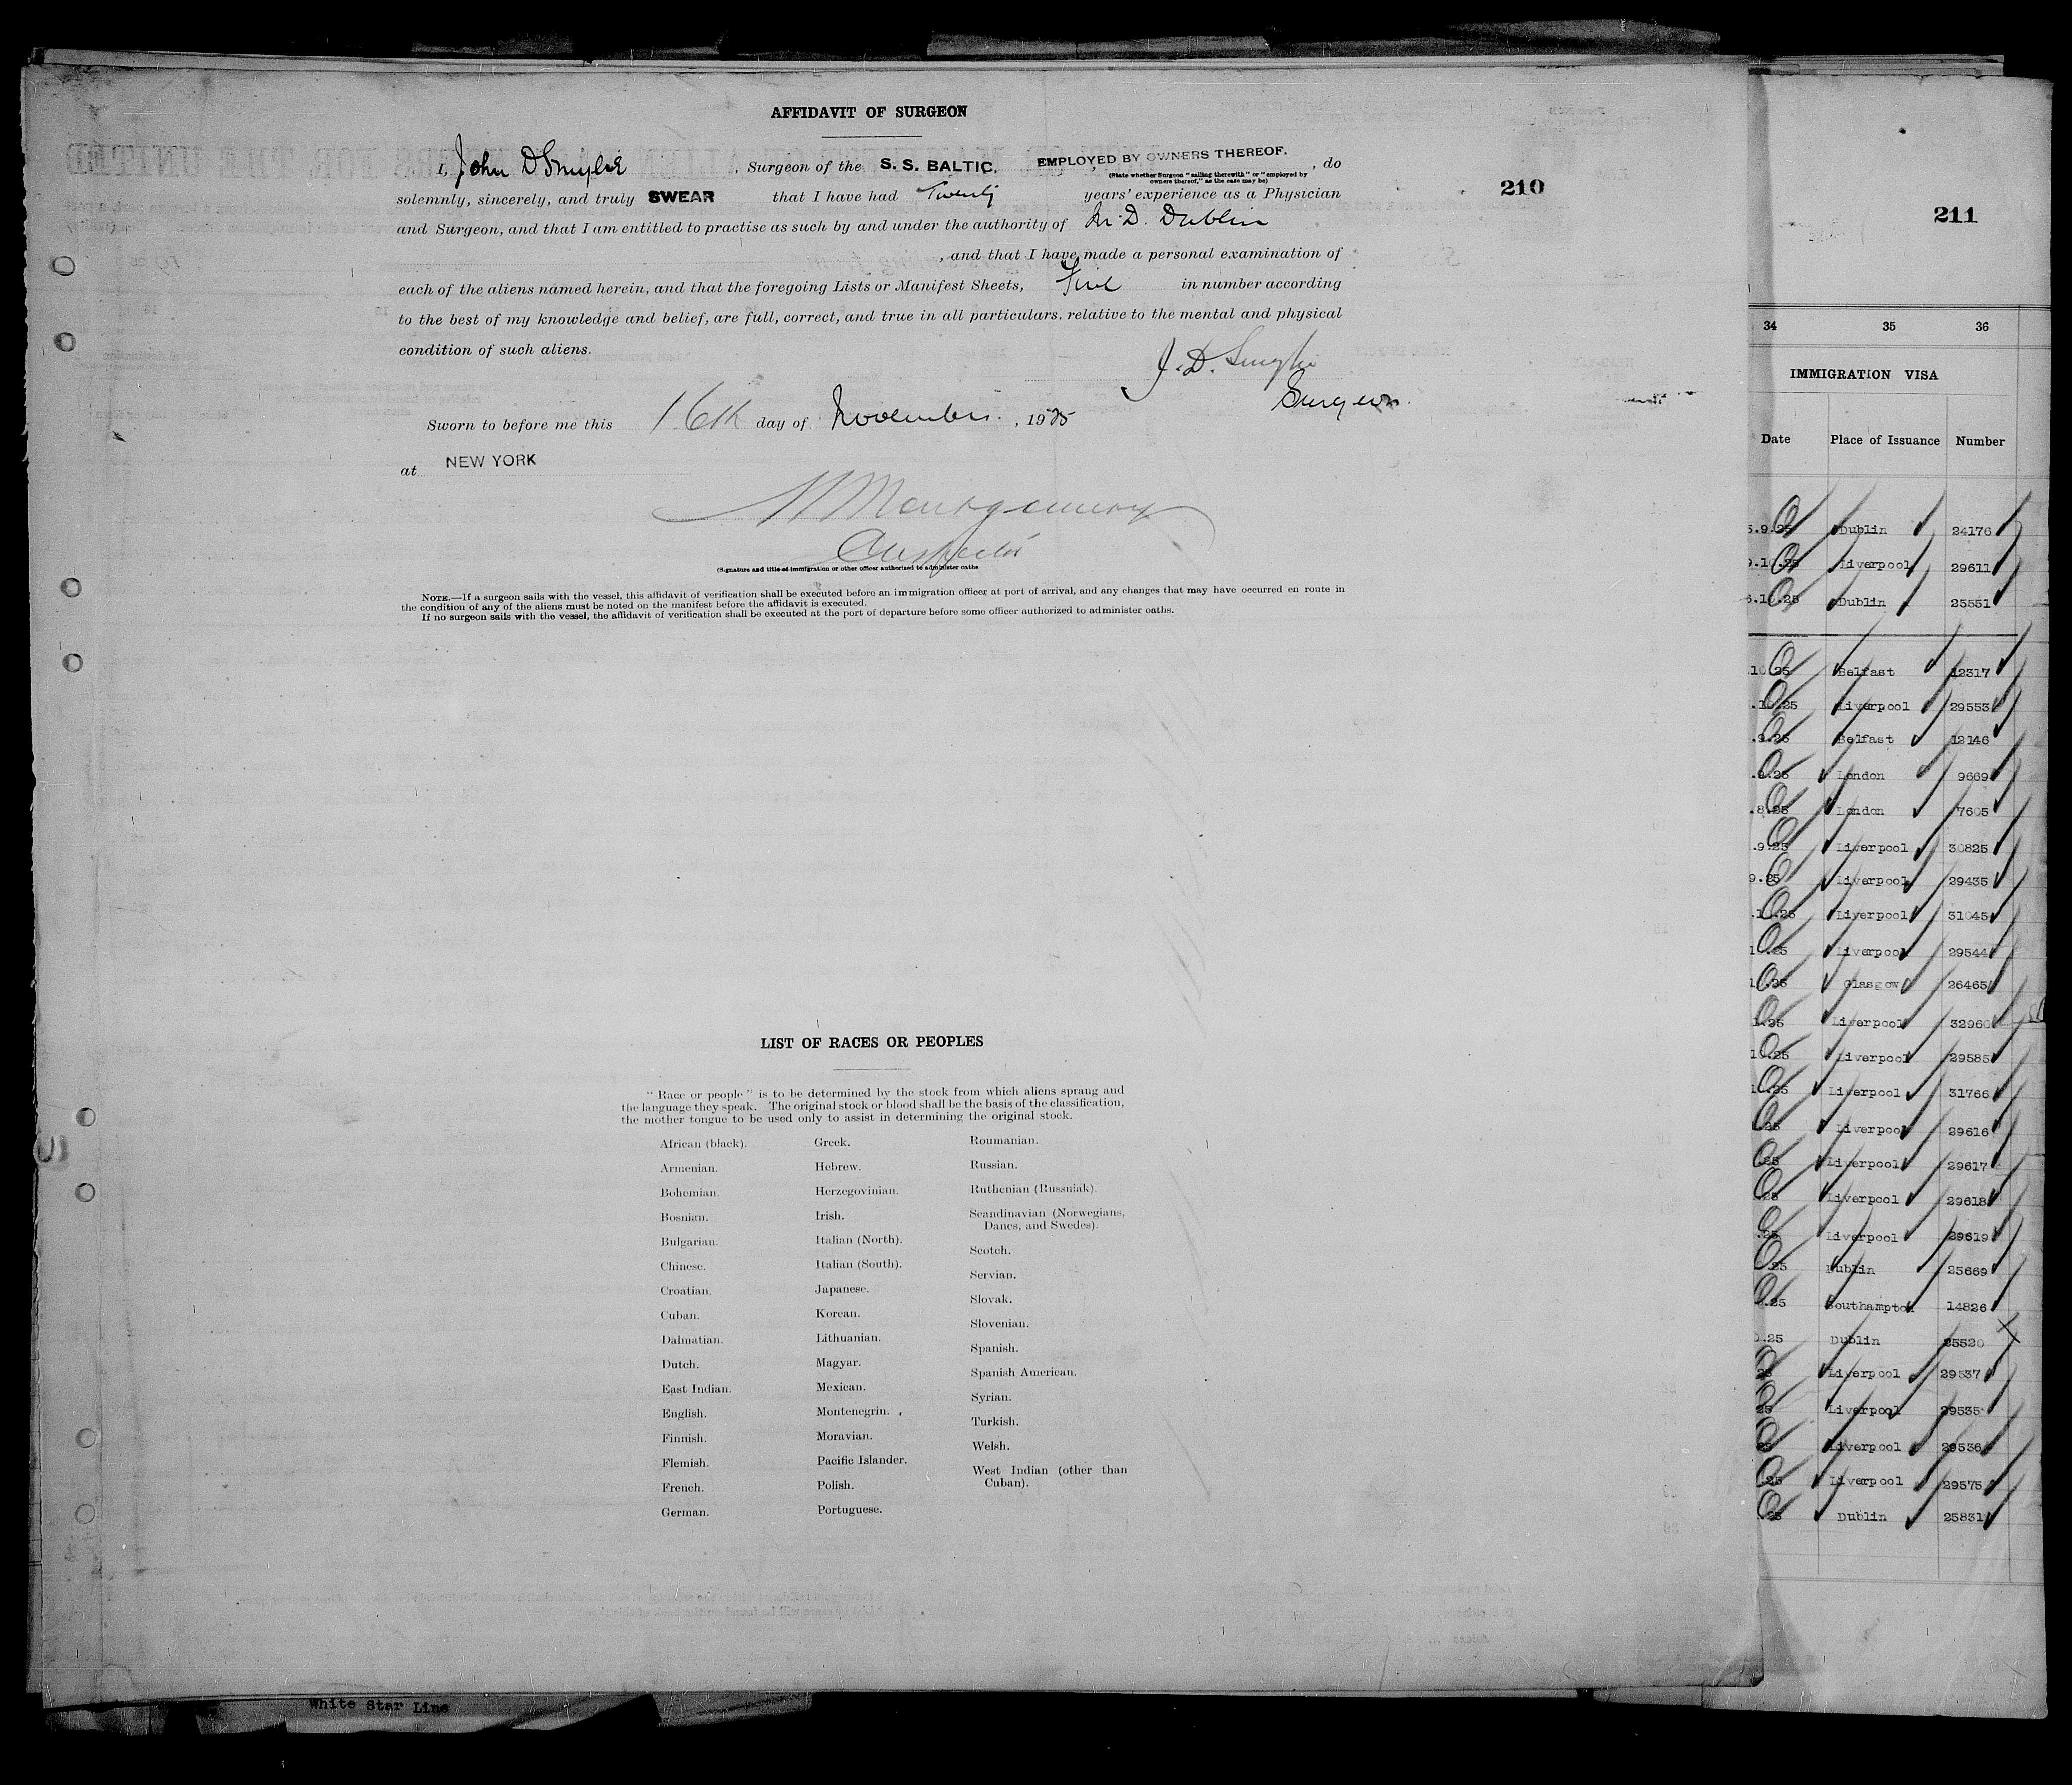 AFFIDAVIT OF SURGEON
I, John D Smylie, Surgeon of the S. S. BALTIC. EMPLOYED BY OWNERS THEREOF. , do
(State whether Surgeon "sailing therewith" or "employed by
owners thereof," as the case may be)
210
solemnly, sincerely, and truly SWEAR that I have had Twenty years' experience as a Physician
and Surgeon, and that I am entitled to practise as such by and under the authority of M.D. Dublin
, and that I have made a personal examination of
each of the aliens named herein, and that the foregoing Lists or Manifest Sheets, Five in number according
to the best of my knowledge and belief, are full, correct, and true in all particulars. relative to the mental and physical
condition of such aliens.
J. D. Smylie
Surgeon.
Sworn to before me this 16th day of November. , 1925
at NEW YORK
Montgomery
Inspector
(Signature and title of immigration or other officer authorized to administer oaths
NOTE.—If a surgeon sails with the vessel, this affidavit of verification shall be executed before an immigration officer at port of arrival, and any changes that may have occurred en route in
the condition of any of the aliens must be noted on the manifest before the affidavit is executed.
If no surgeon sails with the vessel, the affidavit of verification shall be executed at the port of departure before some officer authorized to administer oaths.
LIST OF RACES OR PEOPLES
"Race or people" is to be determined by the stock from which aliens sprang and
the language they speak. The original stock or blood shall be the basis of the classification,
the mother tongue to be used only to assist in determining the original stock.
African (black).
Armenian.
Bohemian.
Bosnian.
Bulgarian.
Chinese.
Croatian.
Cuban.
Dalmatian.
Dutch.
East Indian.
English.
Finnish.
Flemish.
French.
German.
Greek.
Hebrew.
Herzegovinian.
Irish.
Italian (North).
Italian (South).
Japanese.
Korean.
Lithuanian.
Magyar.
Mexican.
Montenegrin.
Moravian.
Pacific Islander.
Polish.
Portuguese.
Roumanian.
Russian.
Ruthenian (Russniak).
Scandinavian (Norwegians,
Danes, and Swedes).
Scotch.
Servian.
Slovak.
Slovenian.
Spanish.
Spanish American.
Syrian.
Turkish.
Welsh.
West Indian (other than
Cuban).
White Star Line
211
34 35 36
IMMIGRATION VISA
Date Place of Issuance Number
Dublin 24176
Liverpool 29611
Dublin 25551
Belfast 12317
Liverpool 29553
Belfast 12146
London 9669
London 7605
Liverpool 30825
Liverpool 29435
Liverpool 31045
Liverpool 29544
Glasgow 26465
Liverpool 32960
Liverpool 29585
Liverpool 31766
Liverpool 29616
Liverpool 29617
Liverpool 29618
Liverpool 29619
Dublin 25669
Southampton 14826
Dublin 25520
Liverpool 29537
Liverpool 29535
Liverpool 29536
Liverpool 29575
Dublin 25831